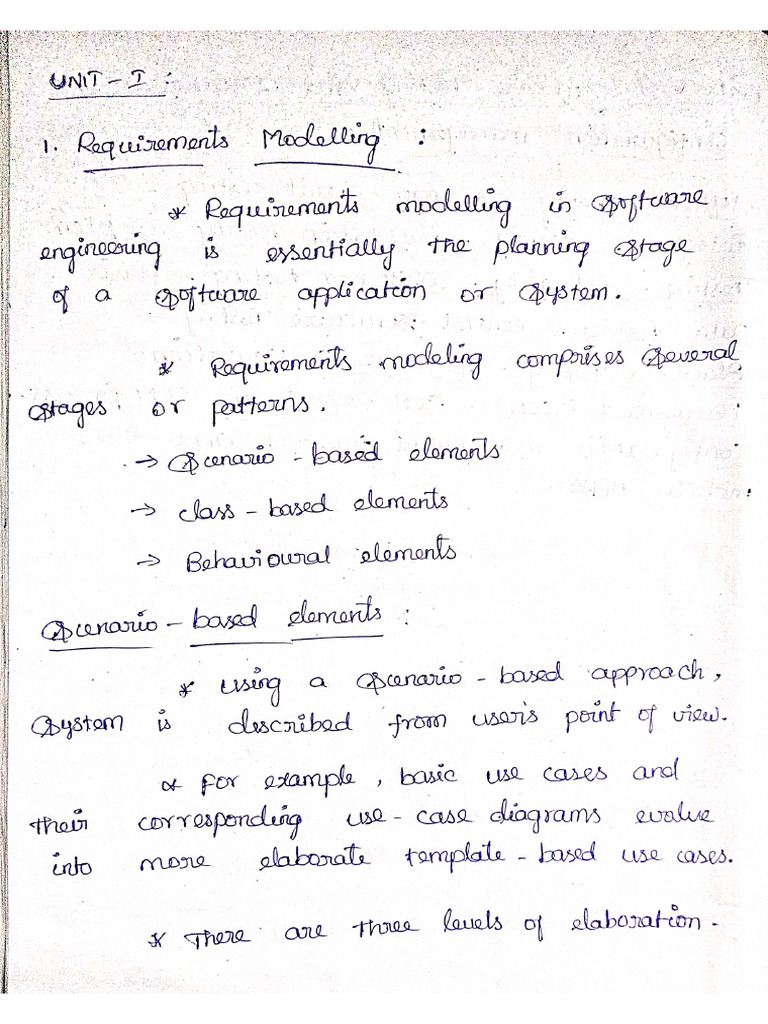 UNIT - I :
1. Requirements Modelling :
* Requirements modelling in Software
engineering is essentially the planning Stage
of a Software application or System.
* Requirements modeling comprises Several
Stages or patterns.
→ Scenario - based elements
→ class - based elements
→ Behavioural elements
Scenario - based elements :
* using a Scenario - based approach,
System is described from user's point of view.
* for example, basic use cases and
their corresponding use - case diagrams evalve
into more elaborate template - based use cases.
* There are three levels of elaboration.